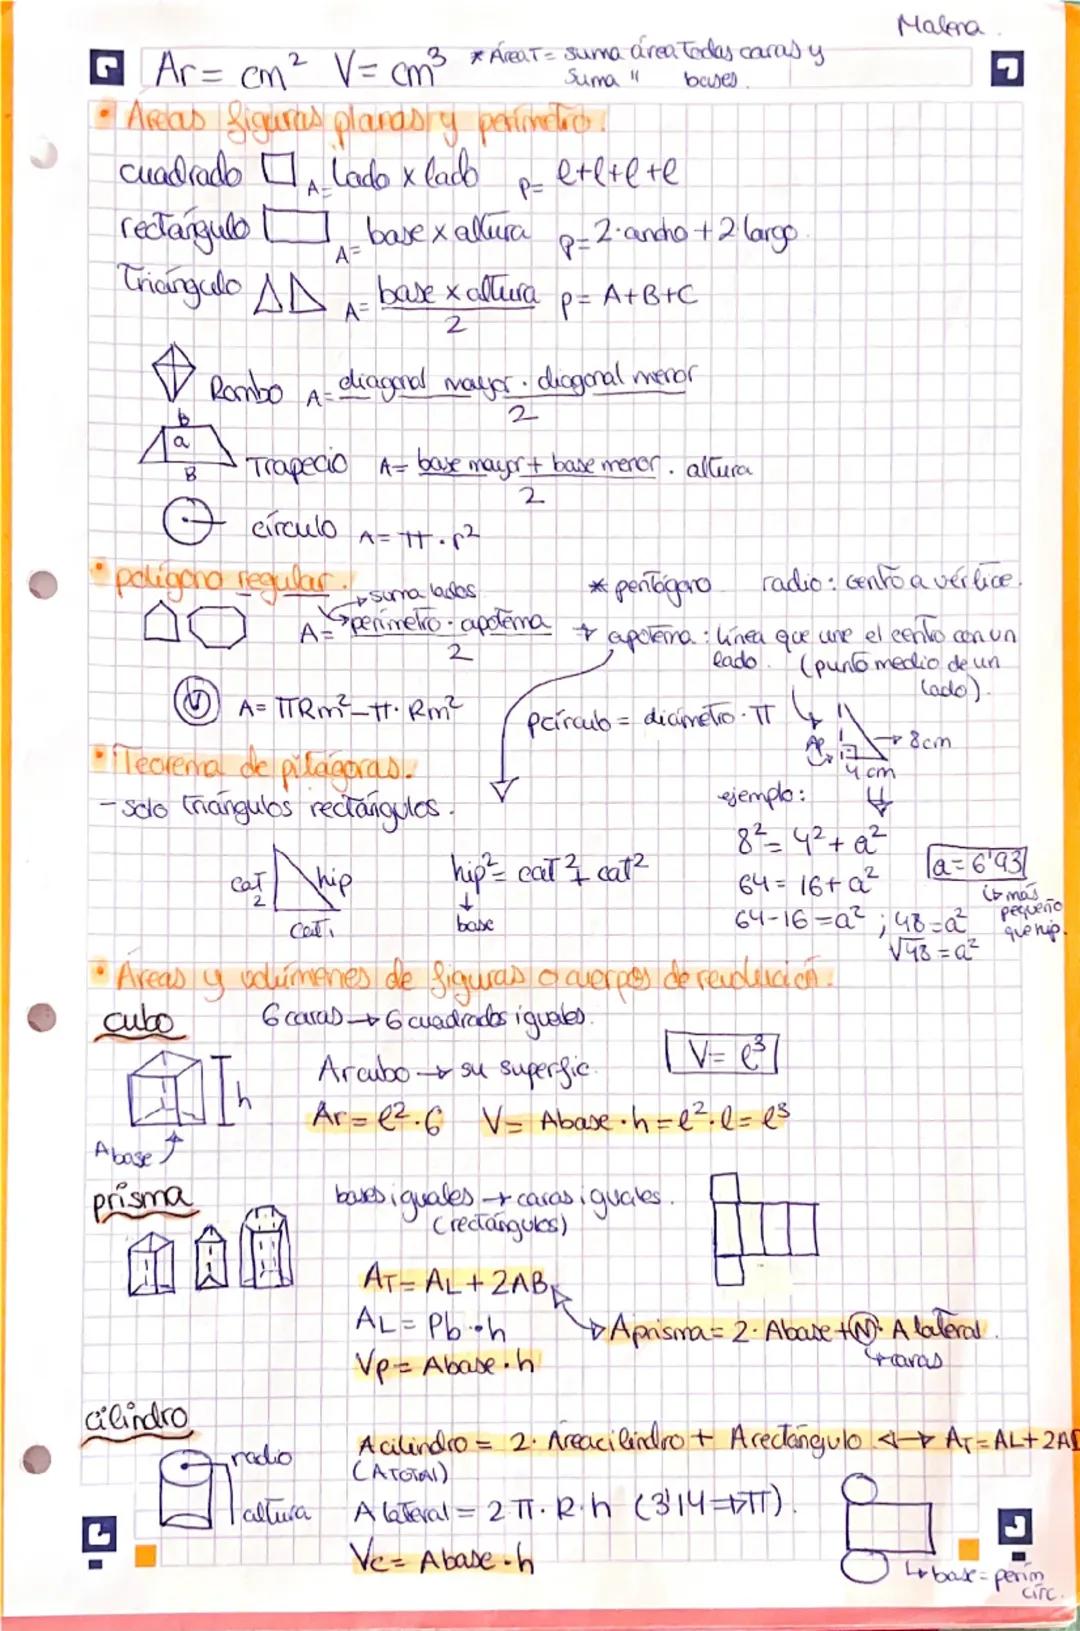 Malena.
Ar = cm² V = cm³ * ÁreaT = suma área todas caras y
Suma " bases.
• Áreas figuras planas y perímetro.
cuadrado A = lado x lado p = l+l+l+l
rectángulo A = base x altura p = 2·ancho + 2 largo.
Triángulo A = base x altura / 2 p = A+B+C
Rombo A = diagonal mayor · diagonal menor / 2
b
a
B
Trapecio A = base mayor + base menor / 2 · altura
círculo A = π · r²
• polígono regular.
suma lados
A = perímetro · apotema / 2
* pentágono radio: centro a vértice.
* apotema: línea que une el centro con un
lado. (punto medio de un
lado).
A = πRm² - π · Rm²
pcírculo = diámetro · π
Ap
8cm
4 cm
• Teorema de pitágoras.
- solo triángulos rectángulos.
cat 2
hip
cat 1
hip² = cat² + cat²
base
ejemplo:
8² = 4² + a²
64 = 16 + a²
64 - 16 = a² ; 48 = a²
√48 = a²
a = 6'93
más
pequeño
que hip.
• Áreas y volúmenes de figuras o cuerpos de revolución.
cubo 6 caras → 6 cuadrados iguales.
h
Abase
Ar cubo → su superfic.
V = l³
Ar = l² · 6 V = Abase · h = l² · l = l³
prisma bases iguales → caras iguales.
(rectángulos)
AT = AL + 2AB
AL = Pb · h
Vp = Abase · h
Aprisma = 2 · Abase + N · A lateral.
caras
cilindro
radio
altura
Acilindro = 2 · Áreacilindro + Arectángulo ↔ AT = AL + 2A
(A TOTAL)
A lateral = 2 π · R · h (3'14 ⇒ π).
Vc = Abase · h
base = perím
circ.